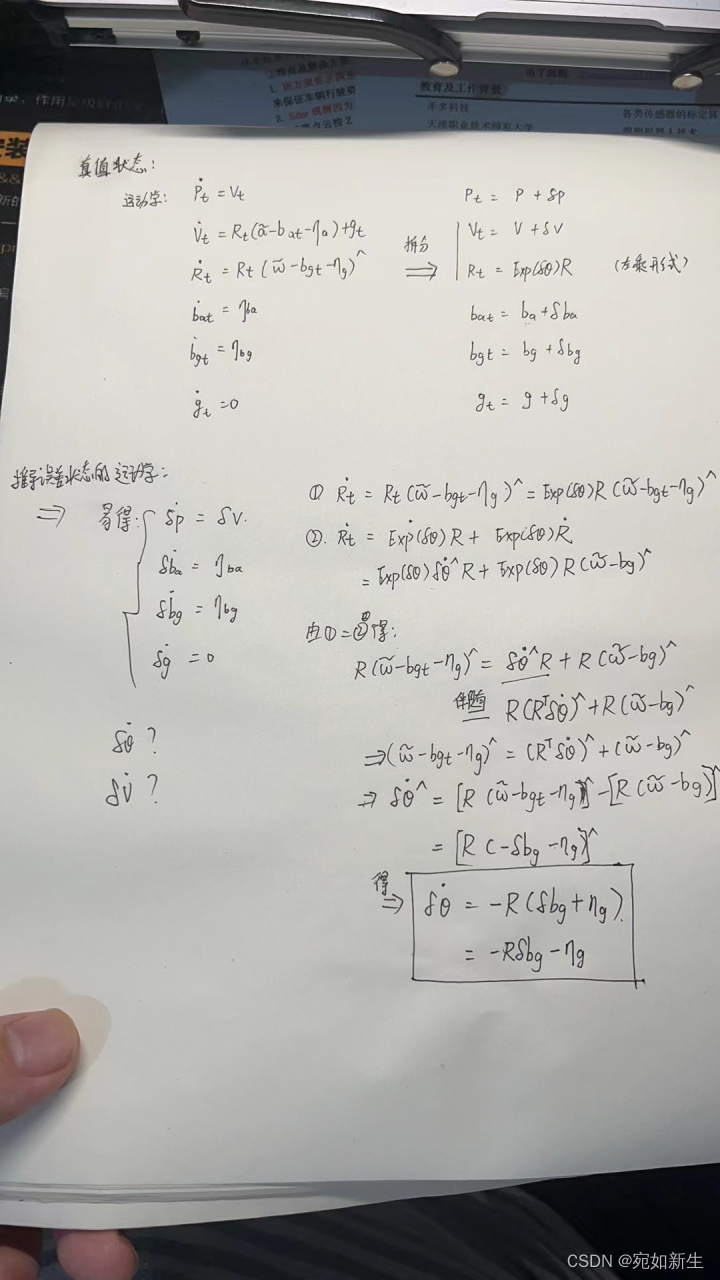 教育及工作背景
禾多科技
1. 
来保证车辆行驶姿
2. lidar 观测因为
各类传感器的标定算
真值状态:
运动学: Ṗt = Vt
V̇t = Rt(ã-bat-ηa)+gt
Ṙt = Rt(ω̃-bgt-ηg)^
ḃat = ηba
ḃgt = ηbg
ġt = 0
拆分 ⇒
Pt = P + δp
Vt = V + δv
Rt = Exp(δθ)R (左乘形式)
bat = ba + δba
bgt = bg + δbg
gt = g + δg
推导误差状态的运动学:
⇒ 易得: δṗ = δv.
δḃa = ηba
δḃg = ηbg
δġ = 0
δθ̇ ?
δv̇ ?
① Ṙt = Rt(ω̃-bgt-ηg)^ = Exp(δθ)R(ω̃-bgt-ηg)^
②. Ṙt = Eẋp(δθ)R + Exp(δθ)Ṙ
= Exp(δθ)δθ̇^R + Exp(δθ)R(ω̃-bg)^
由①=②得:
R(ω̃-bgt-ηg)^ = δθ̇^R + R(ω̃-bg)^
伴随 R(Rᵀδθ̇)^ + R(ω̃-bg)^
⇒ (ω̃-bgt-ηg)^ = (Rᵀδθ̇)^ + (ω̃-bg)^
⇒ δθ̇^ = [R(ω̃-bgt-ηg)]^ - [R(ω̃-bg)]^
= [R(-δbg-ηg)]^
得 ⇒ δθ̇ = -R(δbg+ηg).
= -Rδbg-ηg
CSDN @宛如新生